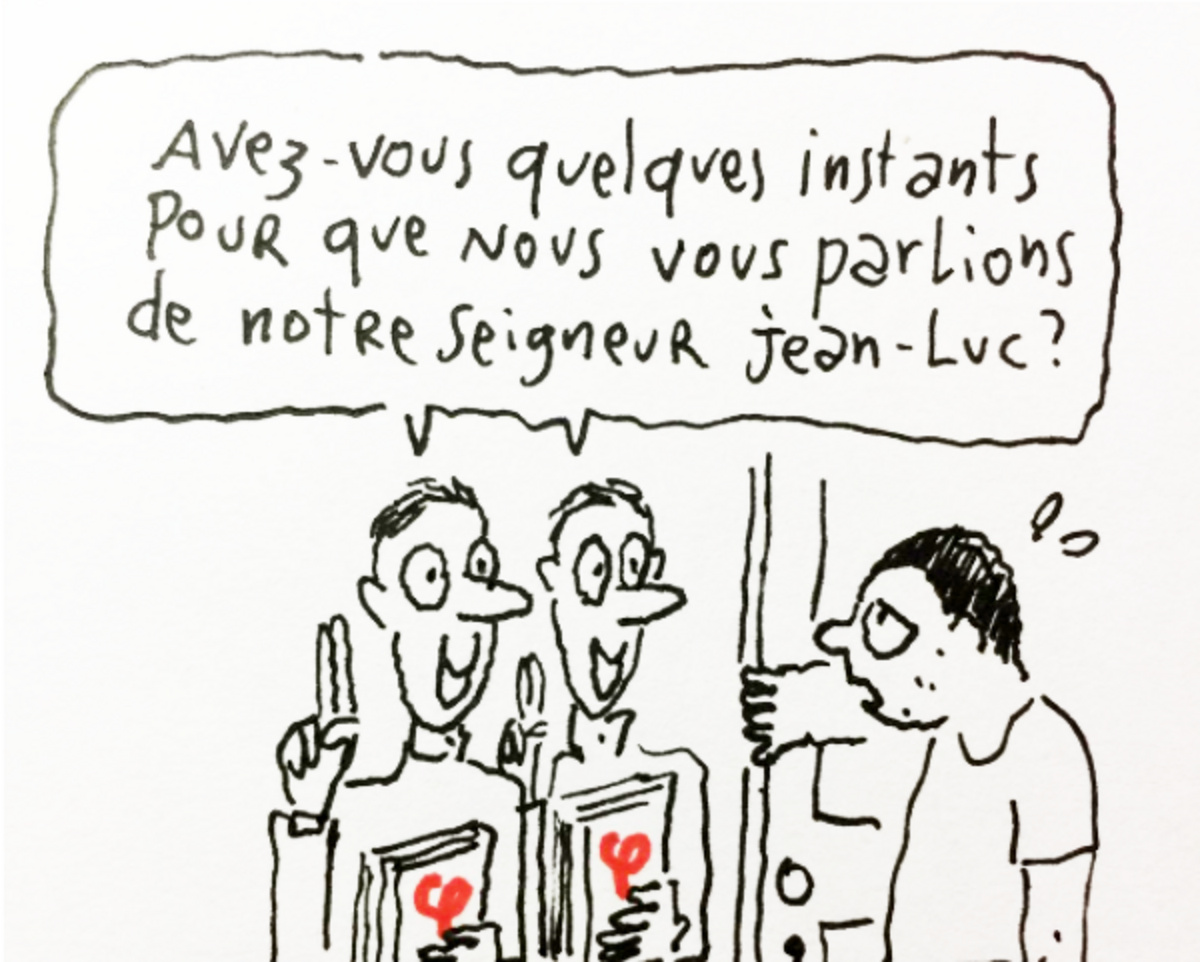 Avez-vous quelques instants
pour que nous vous parlions
de notre seigneur jean-Luc?
φ
φ